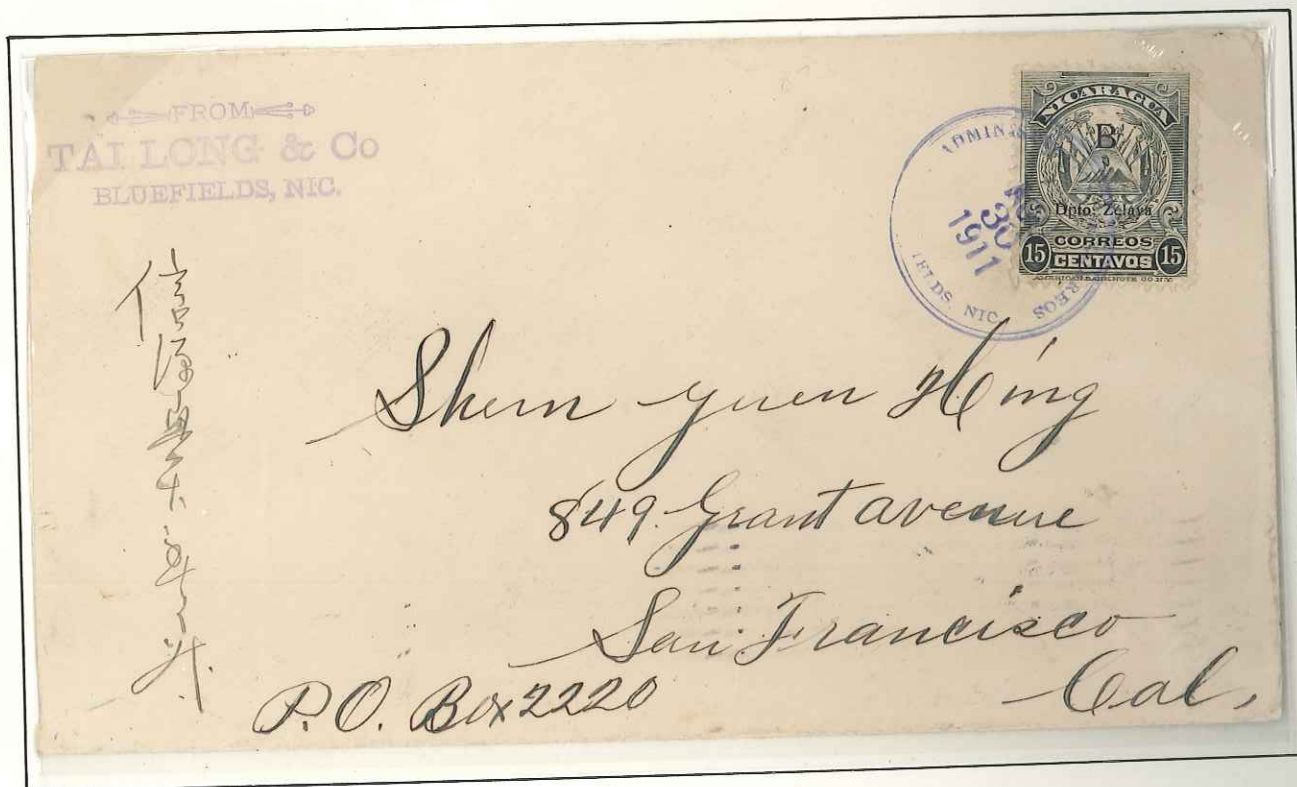 FROM
TAI LONG & Co
BLUEFIELDS, NIC.
NICARAGUA
B
Dpto. Zelaya
CORREOS
15 CENTAVOS 15
30
1911
NIC
Shem Yuen Hing
849 Grant avenue
San Francisco
Cal,
P.O. Box 2220
信